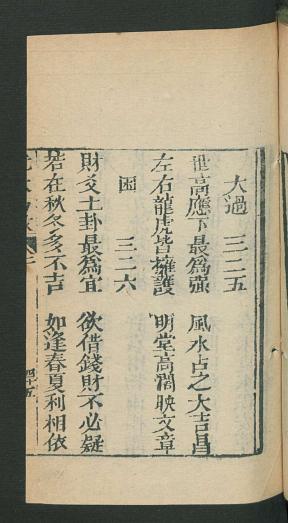 大過 三二五
世高應下最為强 風水占之大吉昌
左右龍虎皆擁護 明堂高濶映文章
困 三二六
財爻上卦最為宜 欲借錢財不必疑
若在秋冬多不吉 如逢春夏利相依
四十五